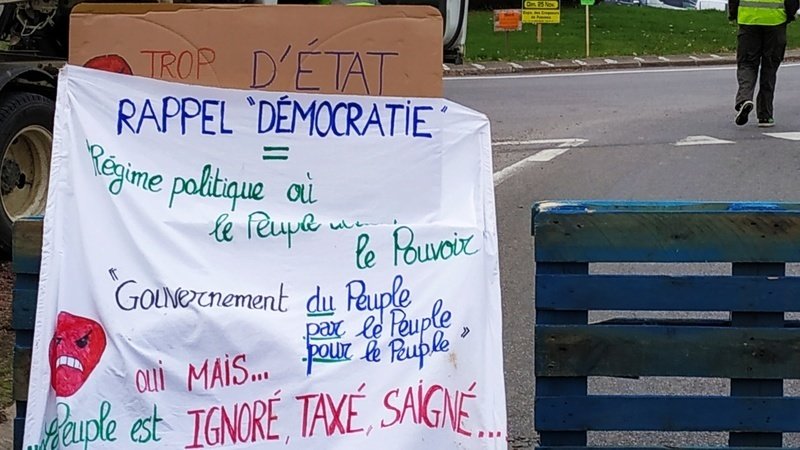 Dim. 25 Nov.
TROP D'ÉTAT
RAPPEL "DÉMOCRATIE"
=
Régime politique où
le Peuple
le Pouvoir
"Gouvernement du Peuple
par le Peuple
pour le Peuple"
OUI MAIS...
...le Peuple est IGNORÉ, TAXÉ, SAIGNÉ...